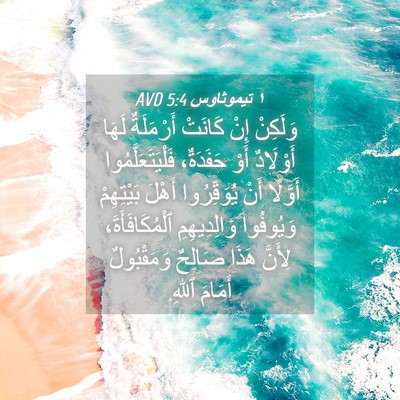 ١ تيموثاوس 5:4 AVD
وَلَكِنْ إِنْ كَانَتْ أَرْمَلَةٌ لَهَا
أَوْلَادٌ أَوْ حَفَدَةٌ، فَلْيَتَعَلَّمُوا
أَوَّلًا أَنْ يُوَقِّرُوا أَهْلَ بَيْتِهِمْ
وَيُوفُوا وَالِدِيهِمِ ٱلْمُكَافَأَةَ،
لِأَنَّ هَذَا صَالِحٌ وَمَقْبُولٌ
أَمَامَ ٱللهِ.